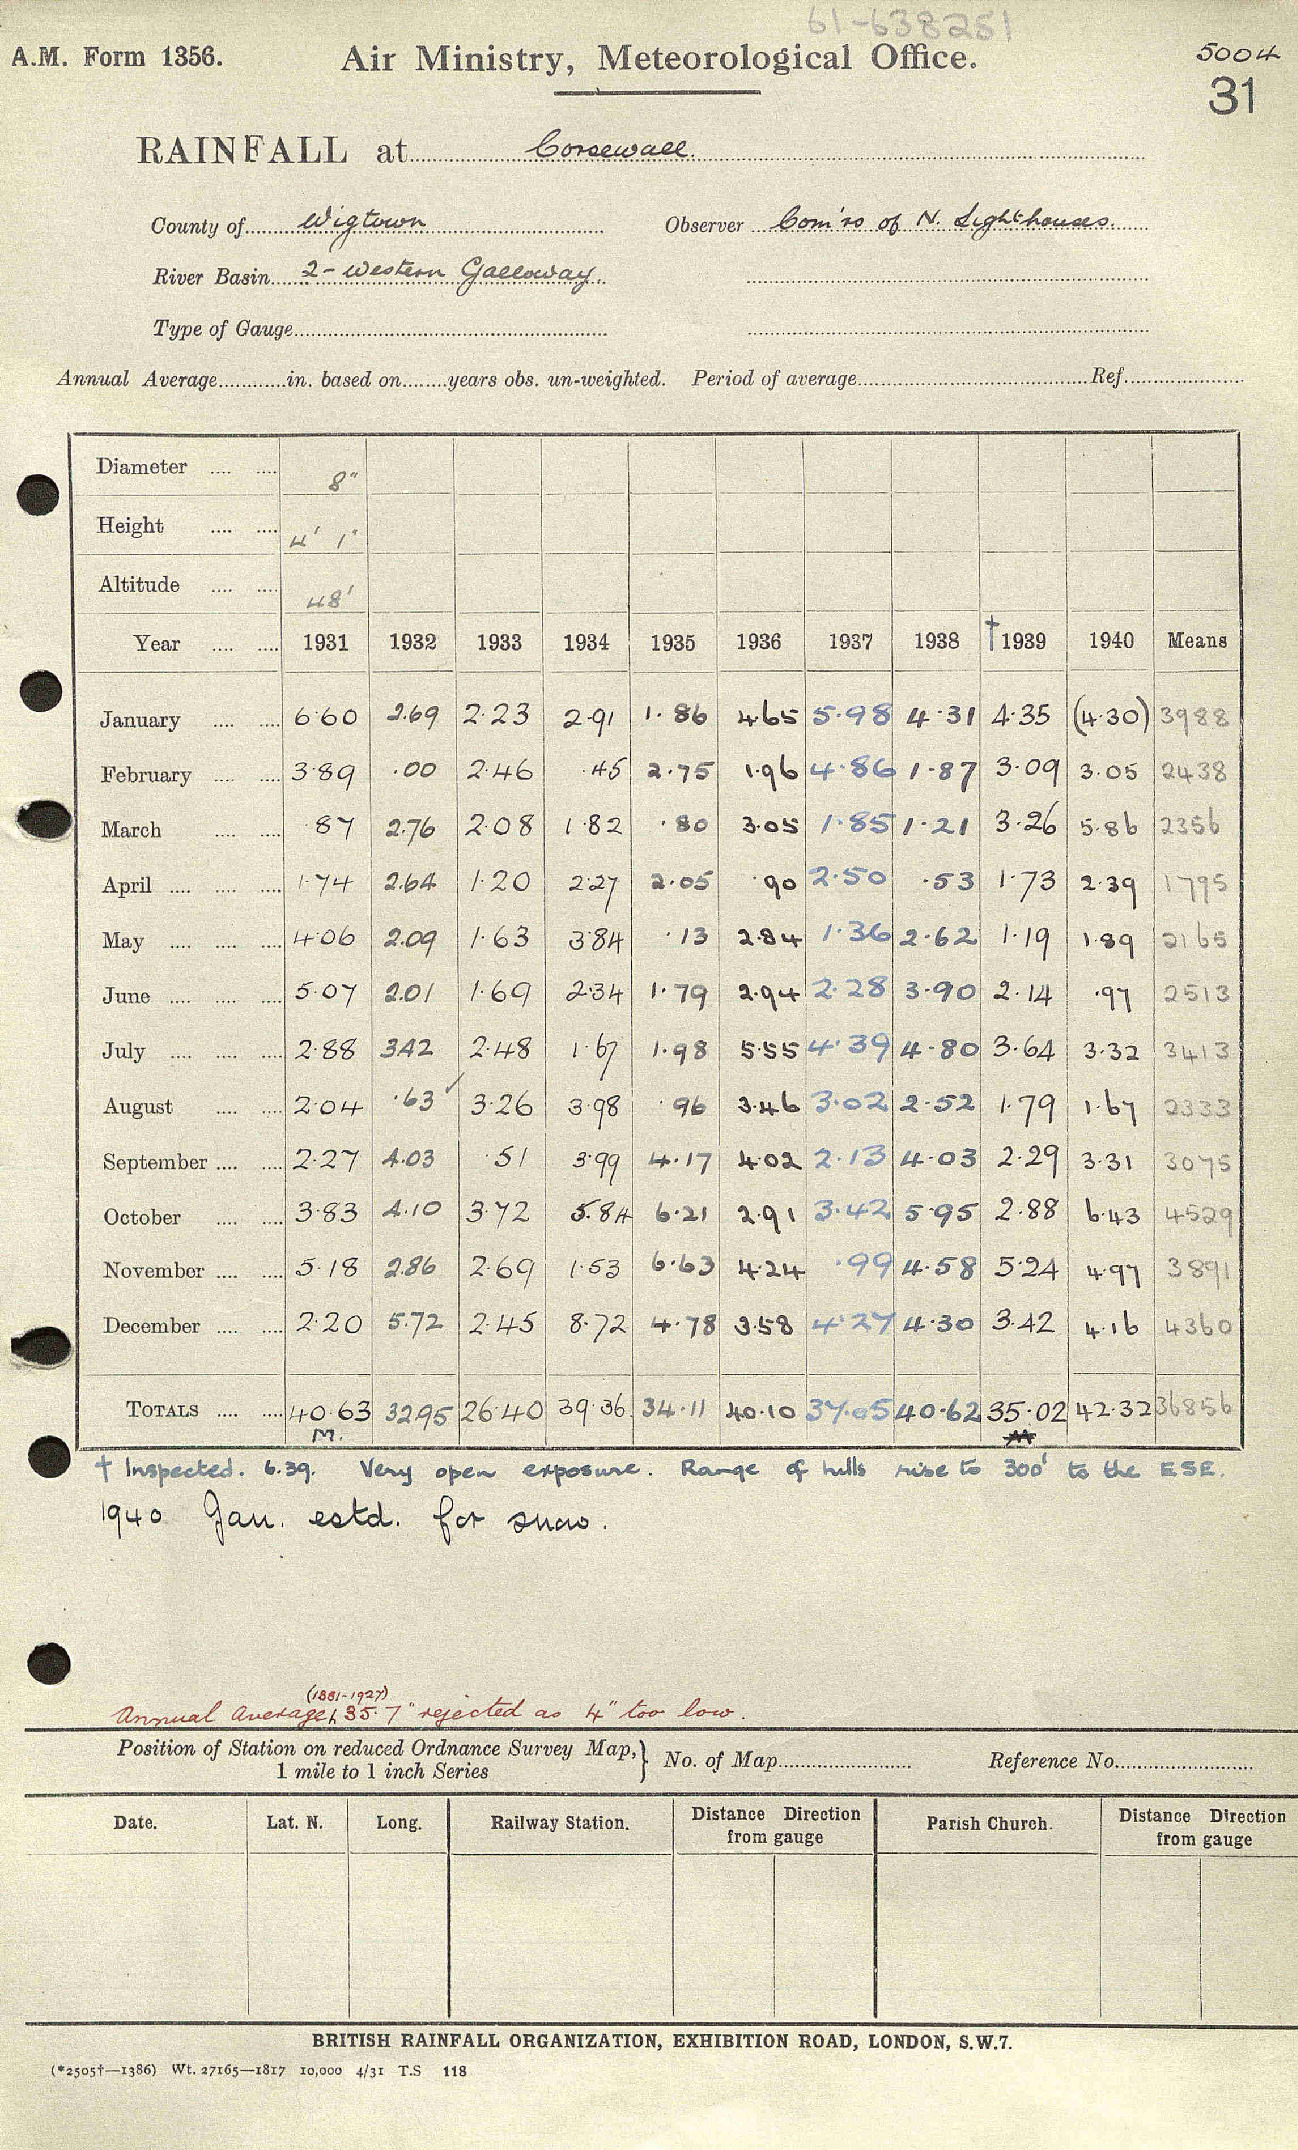 61-638251
A.M. Form 1356. Air Ministry, Meteorological Office. 5004
31
RAINFALL at Corsewall.
County of Wigtown Observer Com'rs of N. Lighthouses.
River Basin 2-Western Galloway.
Type of Gauge
Annual Average in. based on years obs. un-weighted. Period of average Ref.
Diameter 8"
Height 4' 1"
Altitude 48'
Year 1931 1932 1933 1934 1935 1936 1937 1938 †1939 1940 Means
January 6·60 2.69 2·23 2·91 1·86 4·65 5·98 4·31 4·35 (4·30) 3988
February 3·89 ·00 2·46 ·45 2·75 1·96 4·86 1·87 3·09 3·05 2438
March ·87 2.76 2·08 1·82 ·80 3·05 1·85 1·21 3·26 5·86 2356
April 1·74 2.64 1·20 2·27 2·05 ·90 2·50 ·53 1·73 2·39 1795
May 4·06 2.09 1·63 3·84 ·13 2·84 1·36 2·62 1·19 1·89 2165
June 5·07 2.01 1·69 2·34 1·79 2·94 2·28 3·90 2·14 ·97 2513
July 2·88 3.42 2·48 1·67 1·98 5·55 4·39 4·80 3·64 3·32 3413
August 2·04 ·63 ✓ 3·26 3·98 ·96 3·46 3·02 2·52 1·79 1·67 2333
September 2·27 4.03 ·51 3·99 4·17 4·02 2·13 4·03 2·29 3·31 3075
October 3·83 4.10 3·72 5·84 6·21 2·91 3·42 5·95 2·88 6·43 4529
November 5·18 2.86 2·69 1·53 6·63 4·24 ·99 4·58 5·24 4·97 3891
December 2·20 5.72 2·45 8·72 4·78 3·58 4·27 4·30 3·42 4·16 4360
TOTALS 40·63 32.95 26·40 39·36 34·11 40·10 37·05 40·62 35·02 42·32 36856
M.
† Inspected. 6.39. Very open exposure. Range of hills rise to 300' to the ESE.
1940 Jan. estd. for snow.
(1881-1927)
Annual Average 35·7" rejected as 4" too low.
Position of Station on reduced Ordnance Survey Map, 1 mile to 1 inch Series } No. of Map Reference No.
Date. Lat. N. Long. Railway Station. Distance Direction from gauge Parish Church. Distance Direction from gauge
BRITISH RAINFALL ORGANIZATION, EXHIBITION ROAD, LONDON, S.W.7.
(*2505†—1386) Wt. 27165—1817 10,000 4/31 T.S 118